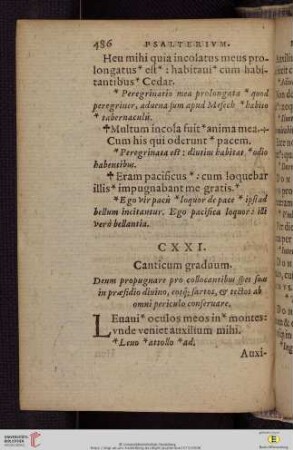 486 PSALTERIVM.
Heu mihi quia incolatus meus pro-
longatus* est* : habitaui* cum habi-
tantibus* Cedar.
* Peregrinatio mea prolongata * quod
peregriner, aduena sum apud Mesech * habito
* tabernaculis.
✝Multum incola fuit*anima mea.
Cum his qui oderunt* pacem.
* Peregrinata est : diutius habitat * odio
habentibus.
✝Eram pacificus* : cum loquebar
illis* impugnabant me gratis.*
* Ego vir pacis * loquor de pace * ipsi ad
bellum incitantur. Ego pacifica loquor : illi
verò bellantia.
CXXI.
Canticum graduum.
Deum propugnare pro collocantibus spes suas
in præsidio diuino, eosq; sartos, & tectos ab
omni periculo conseruare.
LEuaui* oculos meos in* montes:
vnde veniet auxilium mihi.
* Leuo * attollo * ad.
Auxi-